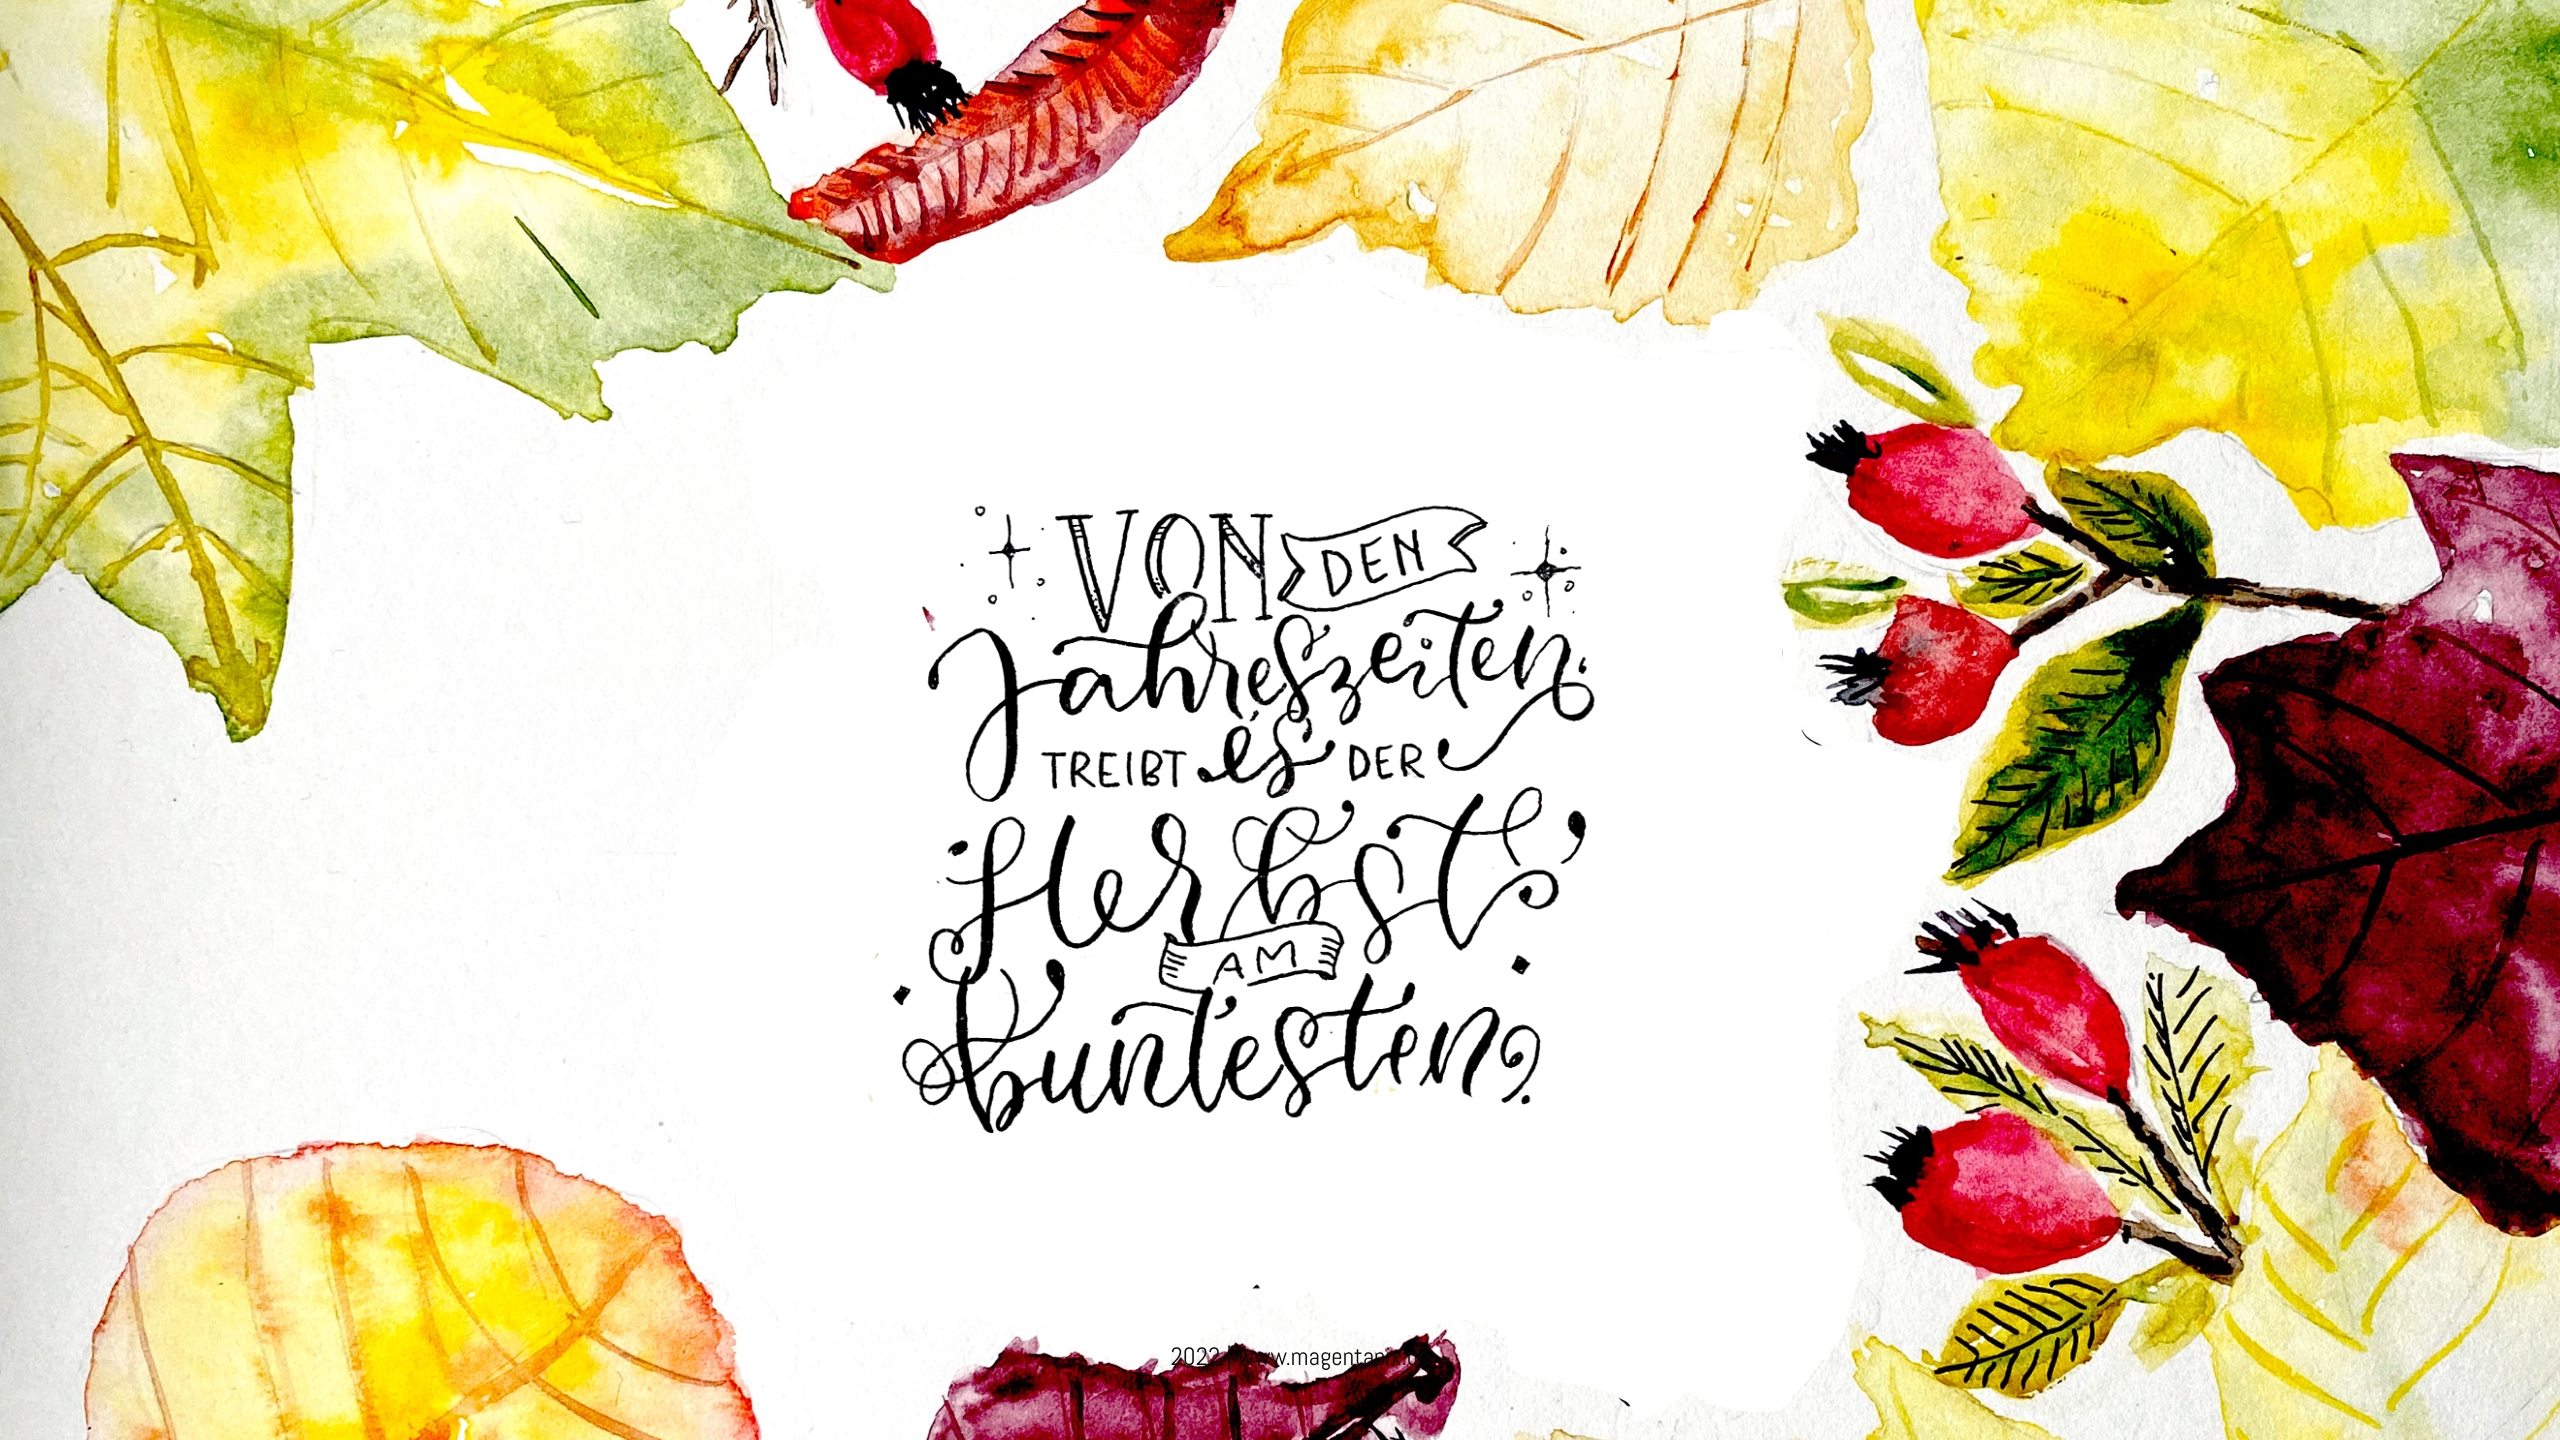 VON DEN
Jahreszeiten
TREIBT es DER
Herbst
AM
buntesten
2022 www.magenta